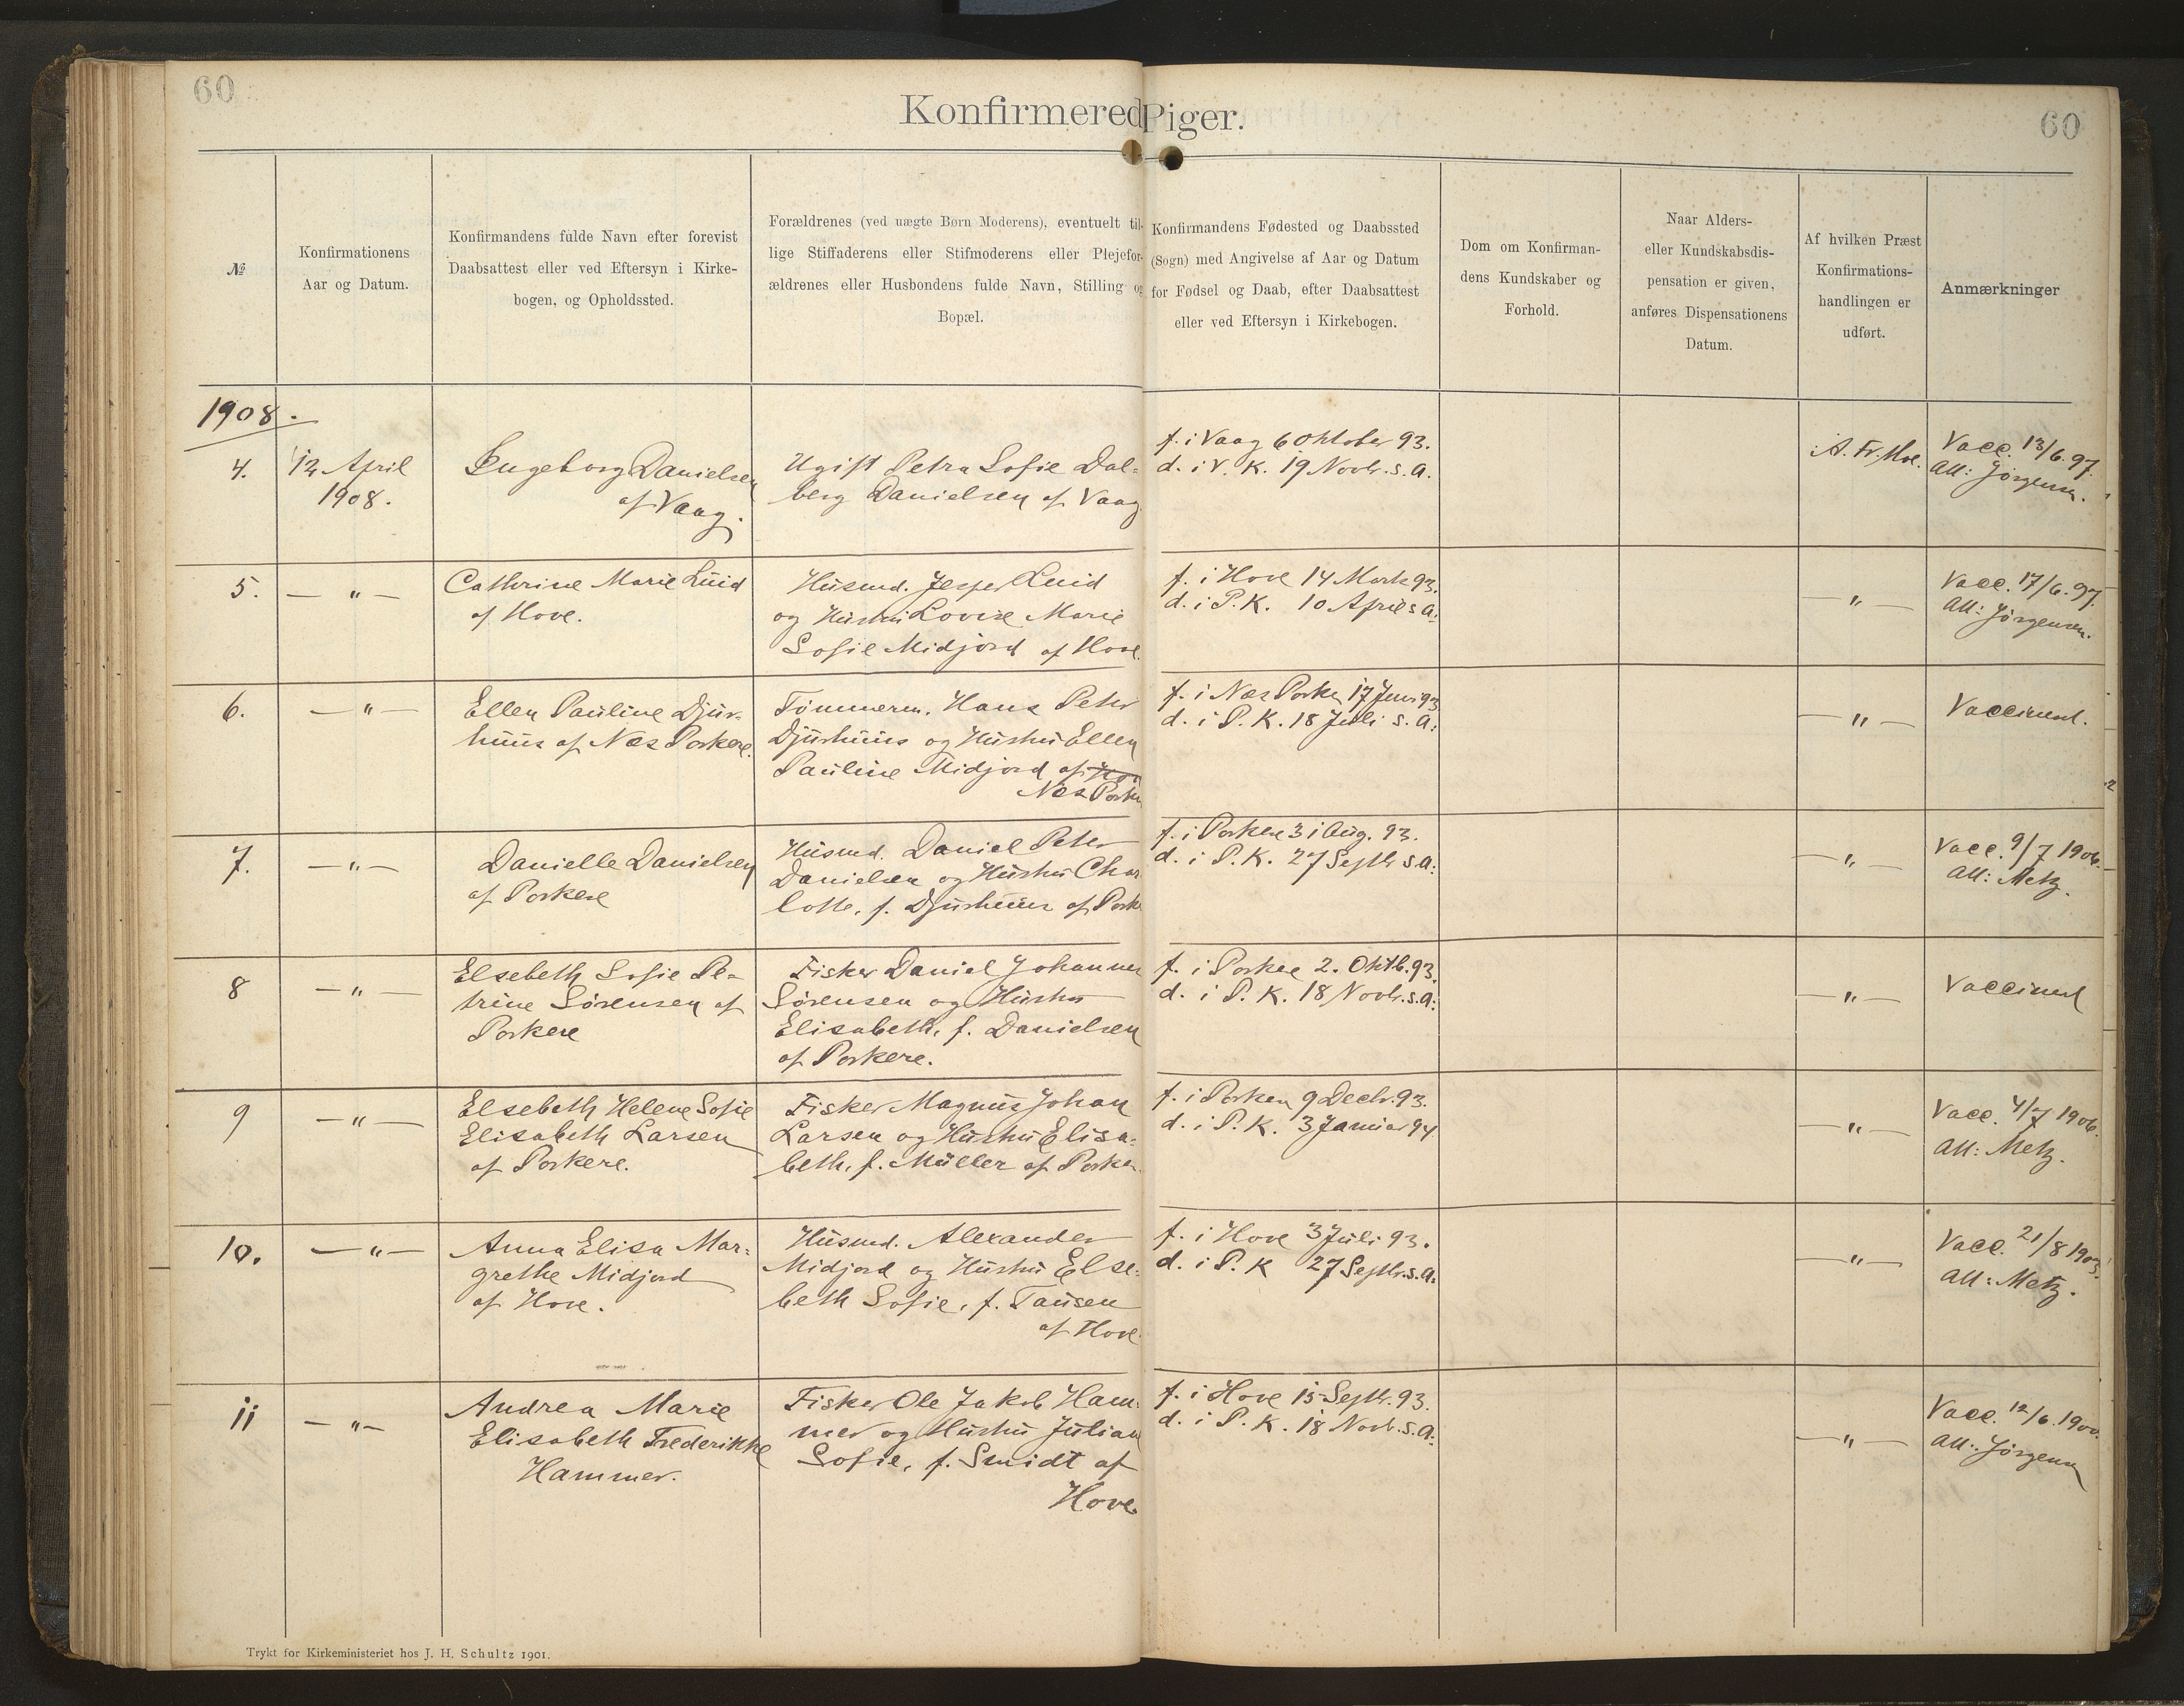 60
Konfirmered Piger.
60
№
Konfirmationens
Aar og Datum.
Konfirmandens fulde Navn efter forevist
Daabsattest eller ved Eftersyn i Kirke-
bogen, og Opholdssted.
Forældrenes (ved uægte Børn Moderens), eventuelt til-
lige Stiffaderens eller Stifmoderens eller Plejefor-
ældrenes eller Husbondens fulde Navn, Stilling og
Bopæl.
Konfirmandens Fødested og Daabssted
(Sogn) med Angivelse af Aar og Datum
for Fødsel og Daab, efter Daabsattest
eller ved Eftersyn i Kirkebogen.
Dom om Konfirman-
dens Kundskaber og
Forhold.
Naar Alders-
eller Kundskabsdis-
pensation er given,
anføres Dispensationens
Datum.
Af hvilken Præst
Konfirmations-
handlingen er
udført.
Anmærkninger
1908.
4.
12 April
1908.
Ingeborg Danielsen
af Vaag.
Ugift Petra Sofie Dal-
berg Danielsen af Vaag
f. i Vaag 6 Oktober 93.
d. i V. K. 19 Novbr. s. A.
A. Fr. Moe.
Vacc. 13/6. 97.
Att: Jörgensen.
5.
— " —
Cathrine Marie Luid
af Hove.
Husmd. Jesper Luid
og Hustru Lovise Marie
Sofie Midjord af Hove.
f. i Hove 14 Marts 93.
d. i P. K. 10 April s. A.
— " —
Vacc. 17/6. 97.
Att: Jörgensen.
6.
— " —
Ellen Pauline Djur-
huus af Næs Porkere.
Tömmerm. Hans Peter
Djurhuus og Hustru Ellen
Pauline Midjord af Hov
Næs Porke
f. i Næs Porke 17 Juni 93
d. i P. K. 18 Juli s. A.
— " —
Vaccineret.
7.
— " —
Danielle Danielsen
af Porkere
Husmd. Daniel Peter
Danielsen og Hustru Char
lotte, f. Djurhuus af Pork
f. i Porkere 31 Aug. 93.
d. i P. K. 27 Septbr s. A.
— " —
Vacc. 9/7 1906.
Att: Metz.
8
— " —
Elsebeth Sofie Pe-
trine Sörensen af
Porkere
Fisker Daniel Johannes
Sörensen og Hustru
Elisabeth, f. Danielsen
af Porkere.
f. i Porkere 2. Oktb. 93.
d. i P. K. 18 Novbr. s. A.
— " —
Vaccineret
9
— " —
Elsebeth Helene Sofie
Elisabeth Larsen
af Porkere.
Fisker Magnus Johan
Larsen og Hustru Elisa-
beth, f. Müller af Porker
f. i Porkere 9 Decbr. 93.
d. i P. K. 3 Januar 94
— " —
Vacc. 4/7 1906.
Att: Metz.
10.
— " —
Anna Elisa Mar-
grethe Midjord
af Hove.
Husmd. Alexander
Midjord og Hustru Else-
beth Sofie, f. Tausen
af Hove
f. i Hove 3 Juli 93.
d. i P. K 27 Septbr. s. A.
— " —
Vacc. 21/8 1903.
Att: Metz.
11
— " —
Andrea Marie
Elisabeth Frederikke
Hammer.
Fisker Ole Jakob Ham-
mer og Hustru Julian
Sofie, f. Smidt af
Hove.
f. i Hove 15 Septbr. 93.
d. i P. K. 18 Novb. s. A.
— " —
Vacc. 12/6. 1900.
Att: Jörgensen
Trykt for Kirkeministeriet hos J. H. Schultz 1901.